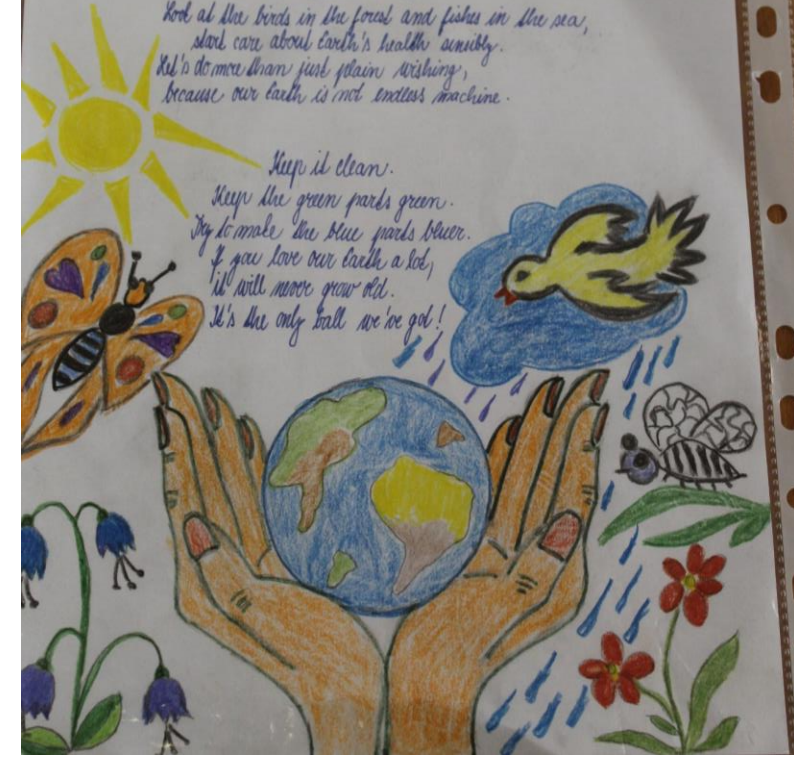 Look at the birds in the forest and fishes in the sea,
start care about Earth's health sensibly.
Let's do more than just plain wishing,
because our Earth is not endless machine.
Keep it clean.
Keep the green parts green.
Try to make the blue parts bluer.
If you love our Earth a lot,
it will never grow old.
It's the only ball we've got!